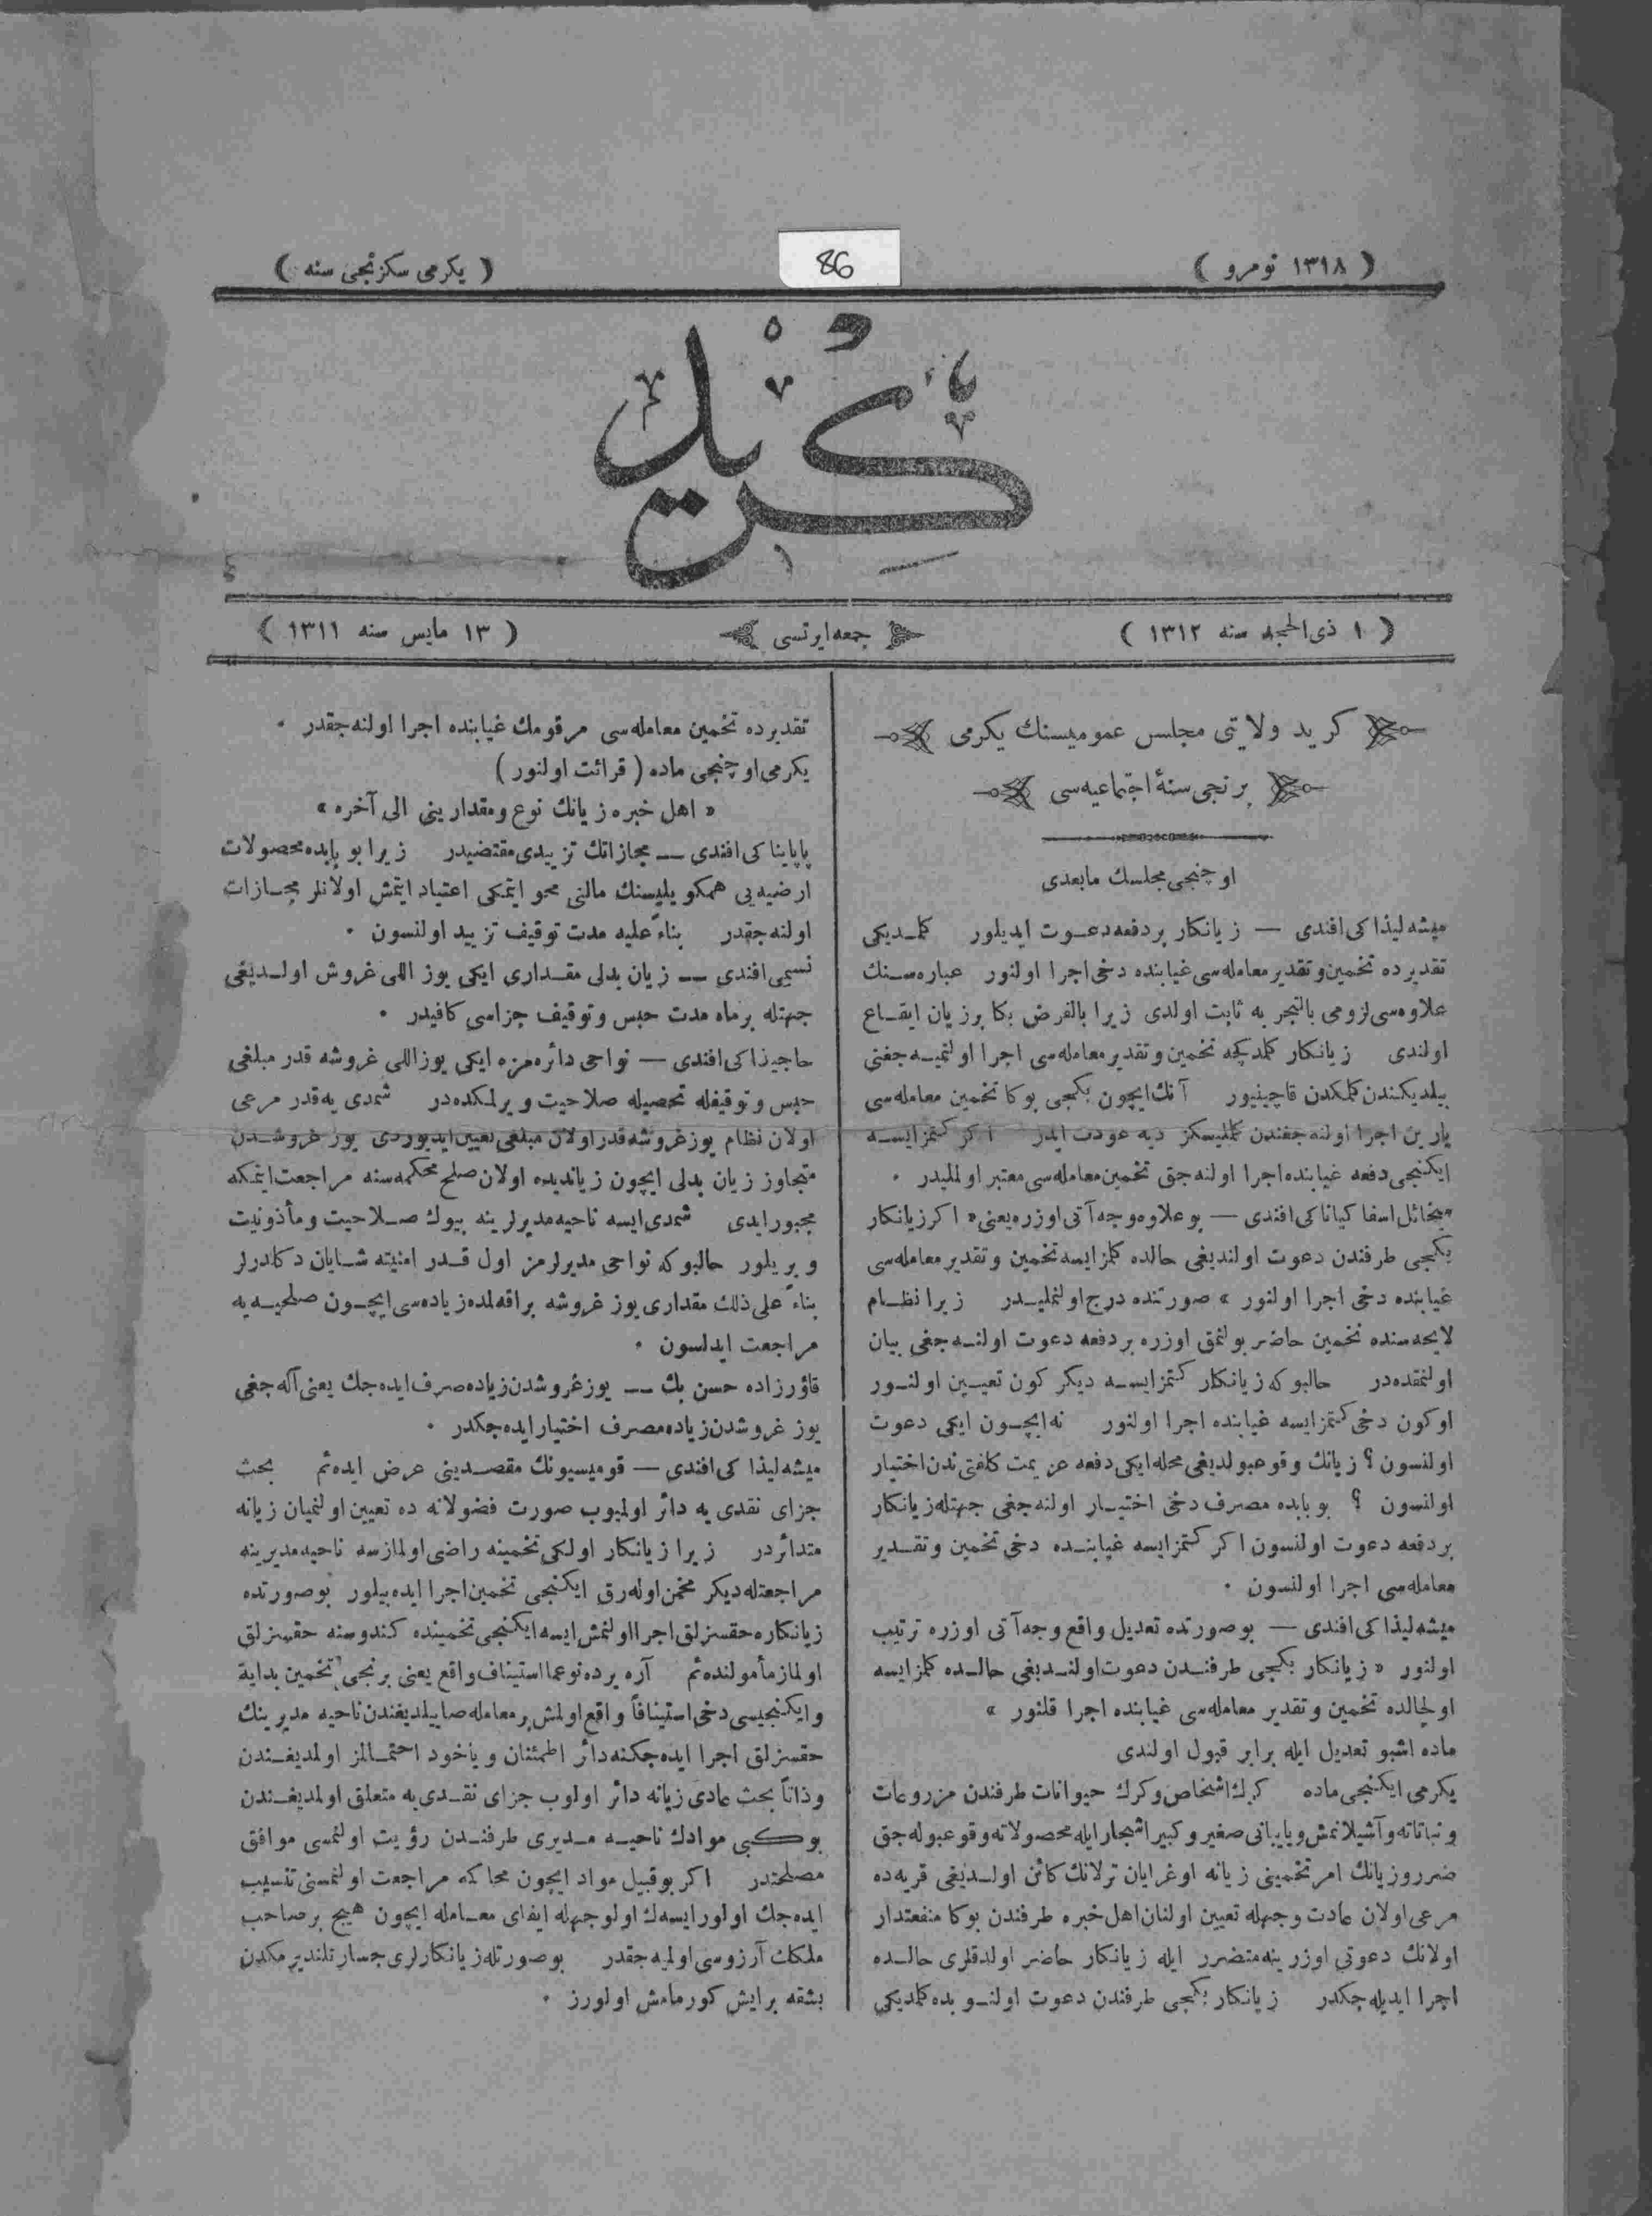 ( ١٣١٨ نومرو )
86
( یکرمی سکزنجی سنه )
کرید
( ١ ذی‌الحجه سنه ١٣١٢ )
جمعه ایرتسی
( ١٣ مایس سنه ١٣١١ )
کرید ولایتی مجلس عمومیسنك یکرمی
برنجی سنۀ اجتماعیه‌سی
اوچنجی مجلسك مابعدی
میشه‌لیذاکی افندی — زیانکار بر دفعه دعوت ایدیلور کلمدیکی
تقدیرده تخمین و تقدیر معامله‌سی غیابنده دخی اجرا اولنور عباره‌سنك
علاوه‌سی لزومی بالتجربه ثابت اولدی زیرا بالفرض بکا بر زیان ایقاع
اولندی زیانکار کلمدکجه تخمین و تقدیر معامله‌سی اجرا اولنمیه‌جغنی
بیلدیکندن کلمکدن قاچینیور آنك ایچون بکجی بوکا تخمین معامله‌سی
یارین اجرا اولنه‌جغندن کلملیسکز دیه عودت ایدر اکر کتمز ایسه
ایکنجی دفعه غیابنده اجرا اولنه‌جق تخمین معامله‌سی معتبر اولملیدر ٠
میخائل اسفاکیاناکی افندی — بو علاوه وجه آتی اوزره یعنی « اکر زیانکار
بکجی طرفندن دعوت اولندیغی حالده کلمز ایسه تخمین و تقدیر معامله‌سی
غیابنده دخی اجرا اولنور » صورتنده درج اولنملیدر زیرا نظام
لایحه‌سنده تخمین حاضر بولنمق اوزره بر دفعه دعوت اولنه‌جغی بیان
اولنمقده‌در حالبوکه زیانکار کتمز ایسه دیکر کون تعیین اولنور
اوکون دخی کتمز ایسه غیابنده اجرا اولنور نه ایچون ایکی دعوت
اولنسون ؟ زیانك وقوعبولدیغی محله ایکی دفعه عزیمت کلفتی ندن اختیار
اولنسون ؟ بو بابده مصرف دخی اختیار اولنه‌جغی جهتله زیانکار
بر دفعه دعوت اولنسون اکر کتمز ایسه غیابنده دخی تخمین و تقدیر
معامله‌سی اجرا اولنسون ٠
میشه‌لیذاکی افندی — بو صورتده تعدیل واقع وجه آتی اوزره ترتیب
اولنور « زیانکار بکجی طرفندن دعوت اولندیغی حالده کلمز ایسه
اولحالده تخمین و تقدیر معامله‌سی غیابنده اجرا قلنور »
ماده اشبو تعدیل ایله برابر قبول اولندی
یکرمی ایکنجی ماده کرك اشخاص و کرك حیوانات طرفندن مزروعات
و نباتاته و آشیلانمش و یابانی صغیر و کبیر اشجار ایله محصولاته وقوعبوله‌جق
ضرر و زیانك امر تخمینی زیانه اوغرایان ترلانك کائن اولدیغی قریه‌ده
مرعی اولان عادت وجهله تعیین اولنان اهل خبره طرفندن بوکا منفعتدار
اولانك دعوتی اوزرینه متضرر ایله زیانکار حاضر اولدقلری حالده
اجرا ایدیله‌جکدر زیانکار بکجی طرفندن دعوت اولنوبده کلمدیکی
تقدیرده تخمین معامله‌سی مرقومك غیابنده اجرا اولنه‌جقدر ٠
یکرمی اوچنجی ماده ( قرائت اولنور )
« اهل خبره زیانك نوع و مقدارینی الی آخره »
پاپایناکی افندی — مجازاتك تزییدی مقتضیدر زیرا بو بابده محصولات
ارضیه‌یی همکویلیسنك مالنی محو ایتمکی اعتیاد ایتمش اولانلر مجازات
اولنه‌جقدر بناءً علیه مدت توقیف تزیید اولنسون ٠
نسیمی افندی — زیان بدلی مقداری ایکی یوز اللی غروش اولدیغی
جهتله بر ماه مدت حبس و توقیف جزاسی کافیدر ٠
حاجیذاکی افندی — نواحی دائره‌مزه ایکی یوز اللی غروشه قدر مبلغی
حبس و توقیفله تحصیله صلاحیت ویرلمکده‌در شمدی‌یه قدر مرعی
اولان نظام یوز غروشه قدر اولان مبلغی تعیین ایدیوردی یوز غروشدن
متجاوز زیان بدلی ایچون زیاندیده اولان صلح محکمه‌سنه مراجعت ایتمکه
مجبور ایدی شمدی ایسه ناحیه مدیرلرینه بیوك صلاحیت و مأذونیت
ویریلور حالبوکه نواحی مدیرلرمز اول قدر امنیته شایان دکلدرلر
بناءً علی ذلك مقداری یوز غروشه براقه‌لمده زیاده‌سی ایچون صلحیه‌یه
مراجعت ایدلسون ٠
قاؤرزاده حسن بك — یوز غروشدن زیاده صرف ایده‌جك یعنی آله‌جغی
یوز غروشدن زیاده مصرف اختیار ایده‌جکدر ٠
میشه‌لیذاکی افندی — قومیسیونك مقصدینی عرض ایده‌یم بحث
جزای نقدی‌یه دائر اولمیوب صورت فضولانه ده تعیین اولنمیان زیانه
متدائردر زیرا زیانکار اولکی تخمینه راضی اولمازسه ناحیه مدیرینه
مراجعتله دیکر مخمن اوله‌رق ایکنجی تخمین اجرا ایده‌بیلور بو صورتده
زیانکاره حقسزلق اجرا اولنمش ایسه ایکنجی تخمیننده کندوسنه حقسزلق
اولماز مأمولنده‌یم آره یرده نوعما استیناف واقع یعنی برنجی تخمین بدایة
و ایکنجیسی دخی استینافاً واقع اولمش بر معامله صاییلدیغندن ناحیه مدیرینك
حقسزلق اجرا ایده‌جکنه دائر اطمئنان و یاخود احتمالز اولمدیغندن
و ذاتاً بحث عادی زیانه دائر اولوب جزای نقدی‌یه متعلق اولمدیغندن
بو کبی موادك ناحیه مدیری طرفندن رؤیت اولنمسی موافق
مصلحتدر اکر بو قبیل مواد ایچون محاکمه مراجعت اولنمسنی تنسیب
ایده‌جك اولور ایسه‌ك اولوجهله ایفای معامله ایچون هیچ بر صاحب
ملکك آرزوسی اولمیه‌جقدر بو صورتله زیانکارلری جسارتلندیرمکدن
بشقه بر ایش کورمامش اولورز ٠